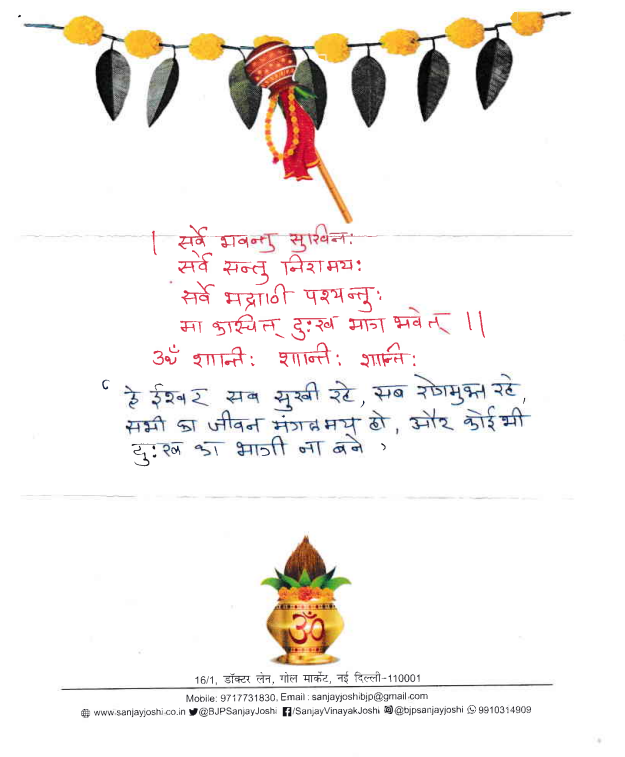 । सर्वे भवन्तु सुखिन:
सर्वे सन्तु निरामय:
सर्वे भद्राणी पश्यन्तु:
मा कास्चित् दु:ख भाग भवेत् ||
ॐ शान्ती: शान्ती: शान्ति:
‘ हे ईश्वर सब सुखी रहे, सब रोगमुक्त रहे,
सभी का जीवन मंगलमय हो, और कोई भी
दु:ख का भागी ना बने ’
ॐ
16/1, डॉक्टर लेन, गोल मार्केट, नई दिल्ली-110001
Mobile: 9717731830, Email : sanjayjoshibjp@gmail.com
www.sanjayjoshi.co.in @BJPSanjayJoshi /SanjayVinayakJoshi @bjpsanjayjoshi 9910314909